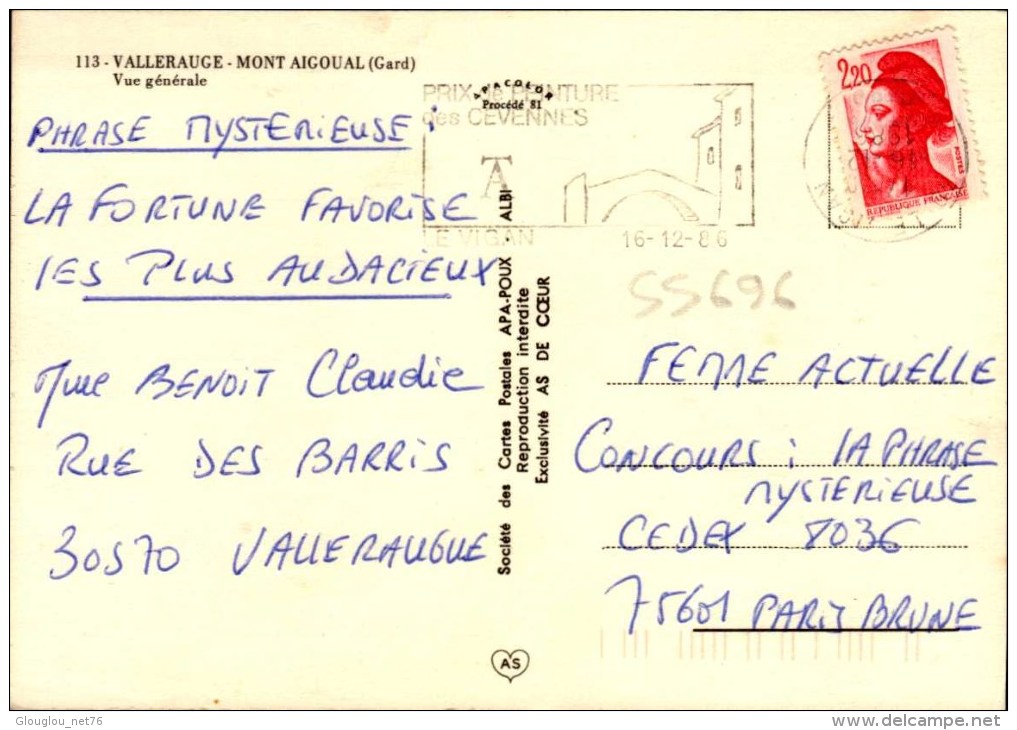 113 - VALLERAUGE - MONT AIGOUAL (Gard)
Vue générale
PHRASE MYSTERIEUSE :
LA FORTUNE FAVORISE
LES PLUS AUDACIEUX
Mme BENOIT Claudie
RUE DES BARRIS
30570 VALLERAUGUE
APACOLOR
Procédé 81
PRIX de PEINTURE
des CEVENNES
LE VIGAN
16-12-86
2,20
POSTES
REPUBLIQUE FRANÇAISE
Société des Cartes Postales APA-POUX - ALBI
Reproduction interdite
Exclusivité AS DE CŒUR
55696
FEMME ACTUELLE
CONCOURS : LA PHRASE
MYSTERIEUSE
CEDEX 8036
75601 PARIS BRUNE
AS
Glouglou_net76
delcampe.net